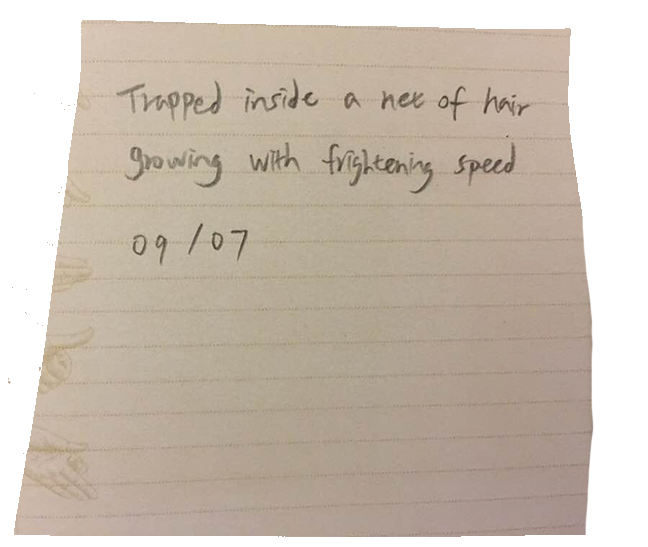 Trapped inside a net of hair
growing with frightening speed
09/07